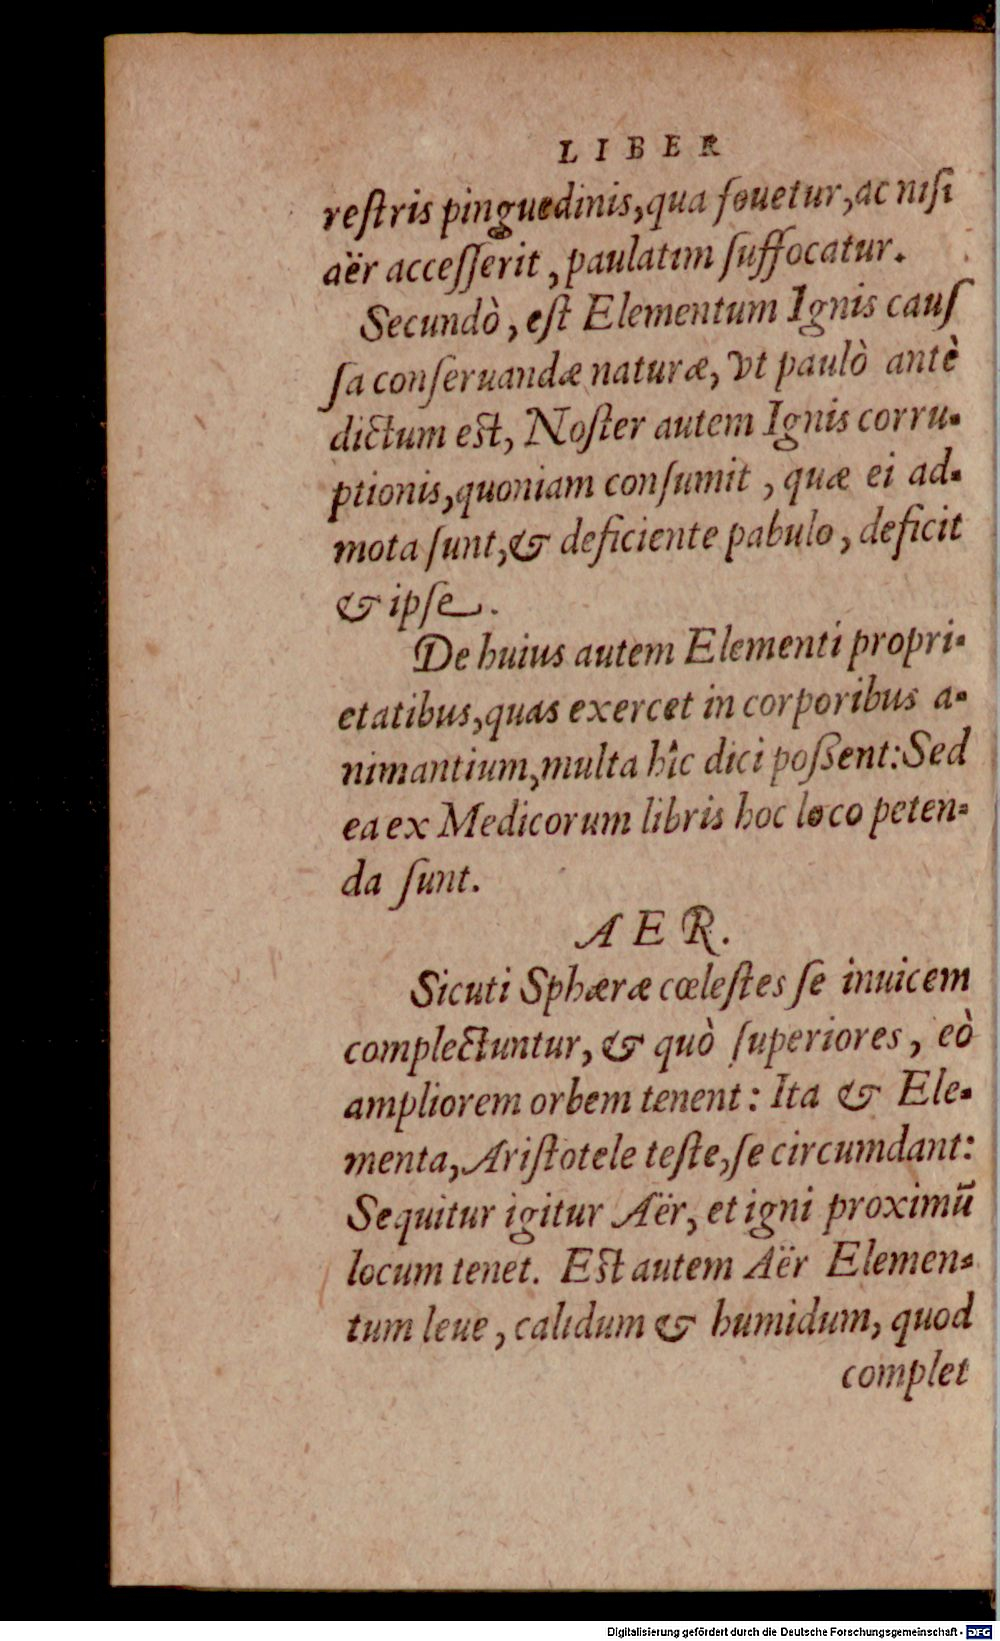 LIBER
reſtris pinguedinis,qua fouetur,ac niſi
aër acceſſerit, paulatim ſuffocatur.
Secundò, eſt Elementum Ignis cauſ
ſa conſeruandæ naturæ, vt paulò antè
dictum eſt, Noſter autem Ignis corru-
ptionis,quoniam conſumit, quæ ei ad-
mota ſunt,& deficiente pabulo, deficit
& ipſe.
De huius autem Elementi propri-
etatibus,quas exercet in corporibus a-
nimantium,multa hîc dici poßent:Sed
ea ex Medicorum libris hoc loco peten-
da ſunt.
AER.
Sicuti Sphæræ cœleſtes ſe inuicem
complectuntur, & quò ſuperiores, eò
ampliorem orbem tenent: Ita & Ele-
menta,Ariſtotele teſte,ſe circumdant:
Sequitur igitur Aër, et igni proximū
locum tenet. Eſt autem Aër Elemen-
tum leue, calidum & humidum, quod
complet
Digitalisierung gefördert durch die Deutsche Forschungsgemeinschaft - DFG